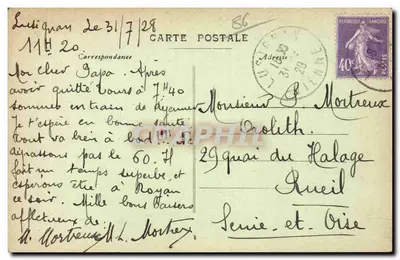 Lusignan le 31/7/28
11H 20
86
CARTE POSTALE
Correspondance
Adresse
RÉPUBLIQUE FRANÇAISE
40c
Mon cher Papa. Après
avoir quitté Tours à 7H40
sommes en train de déjeuner
Je t'espère en bonne santé
tout va bien à bord!!! Ne
dépassons pas le 60. Il
fait un temps superbe et
espérons être à Royan
ce soir. Mille bons baisers
affectueux de.
M. Mortreux M L. Mortreux
Monsieur P. Mortreux
Orolith.
29 quai du Halage
Rueil
Seine-et-Oise